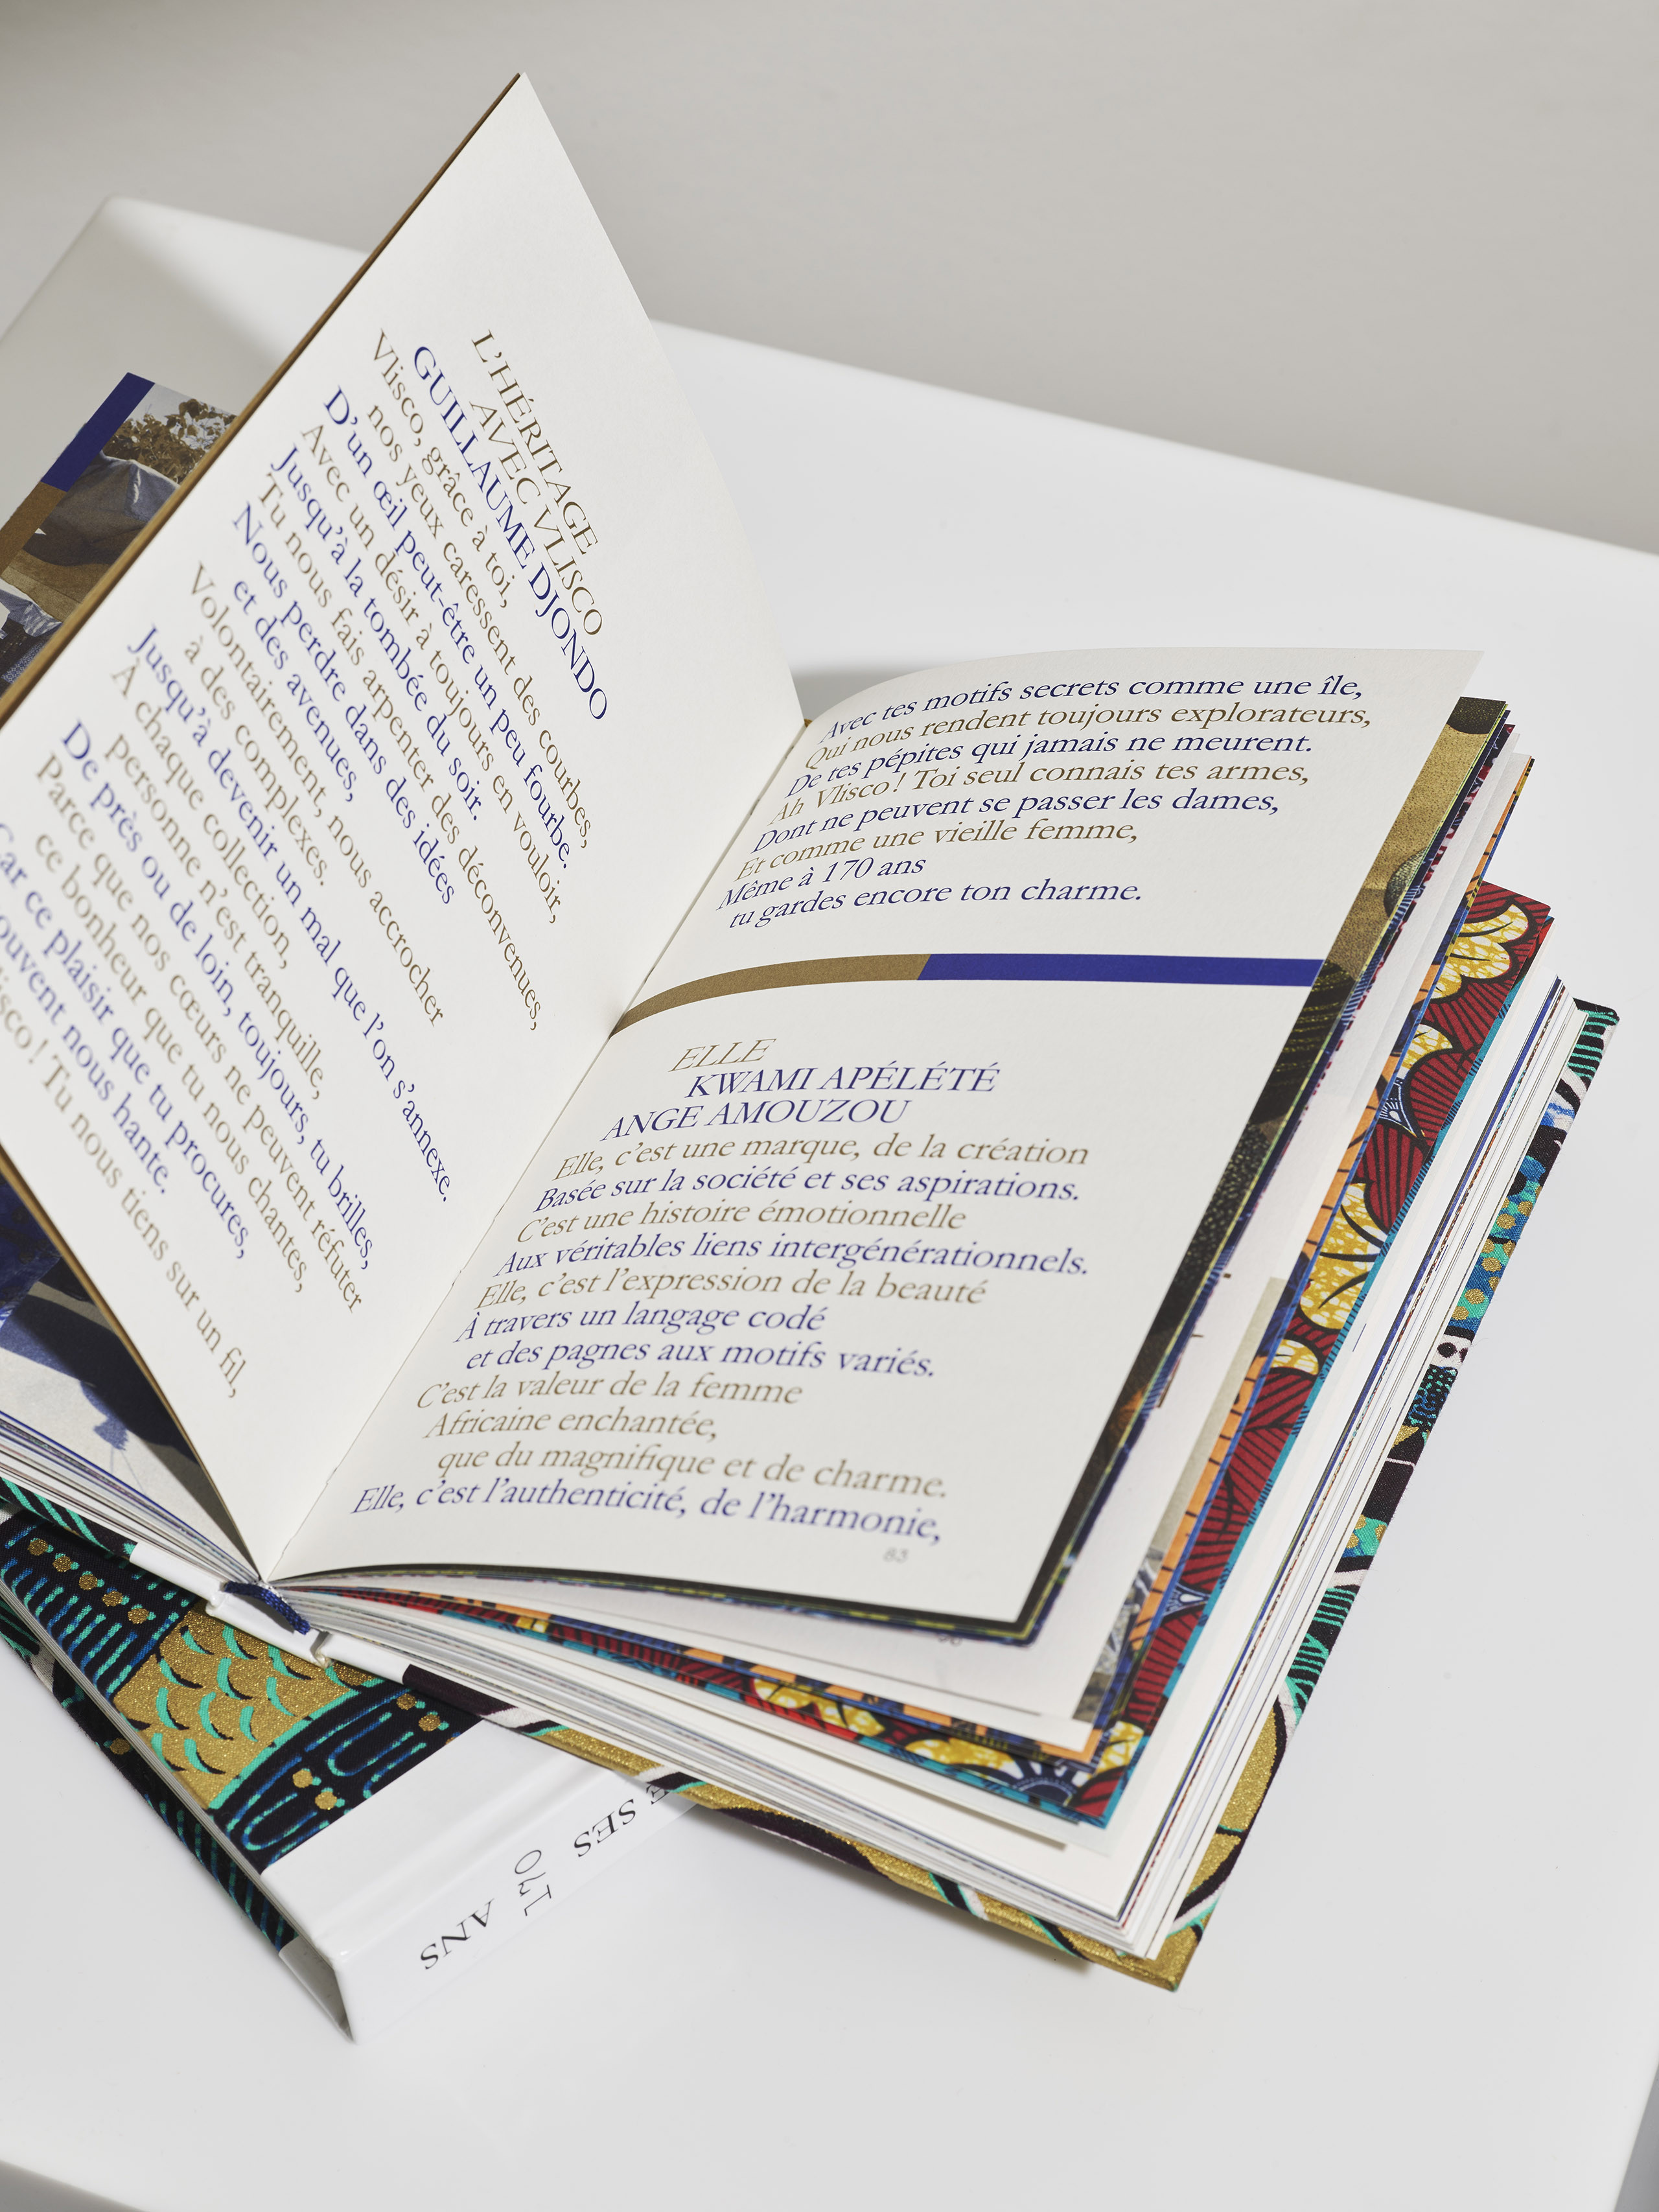 L'HÉRITAGE
AVEC VLISCO
GUILLAUME DJONDO
Vlisco, grâce à toi,
nos yeux caressent des courbes,
D'un œil peut-être un peu fourbe.
Avec un désir à toujours en vouloir,
Jusqu'à la tombée du soir.
Tu nous fais arpenter des déconvenues,
Nous perdre dans des idées
et des avenues,
Volontairement, nous accrocher
à des complexes.
Jusqu'à devenir un mal que l'on s'annexe.
À chaque collection,
personne n'est tranquille,
De près ou de loin, toujours, tu brilles,
Parce que nos cœurs ne peuvent réfuter
ce bonheur que tu nous chantes,
Car ce plaisir que tu procures,
nous hante.
Tu nous tiens sur un fil,
Avec tes motifs secrets comme une île,
Qui nous rendent toujours explorateurs,
De tes pépites qui jamais ne meurent.
Ah Vlisco ! Toi seul connais tes armes,
Dont ne peuvent se passer les dames,
Et comme une vieille femme,
Même à 170 ans
tu gardes encore ton charme.
ELLE
KWAMI APÉLÉTÉ
ANGE AMOUZOU
Elle, c'est une marque, de la création
Basée sur la société et ses aspirations.
C'est une histoire émotionnelle
Aux véritables liens intergénérationnels.
Elle, c'est l'expression de la beauté
À travers un langage codé
et des pagnes aux motifs variés.
C'est la valeur de la femme
Africaine enchantée,
que du magnifique et de charme.
Elle, c'est l'authenticité, de l'harmonie,
83
SES
170
ANS